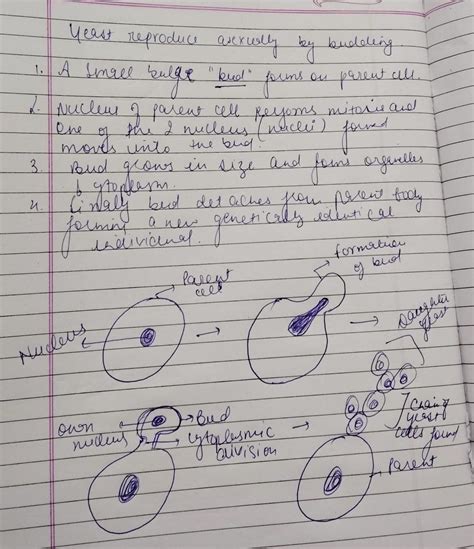 Yeast reproduce asexually by budding.
1. A small bulge "bud" forms on parent cell.
2. Nucleus of parent cell performs mitosis and
one of the 2 nucleus (nuclei) formed
moves into the bud.
3. Bud grows in size and forms organelles
& cytoplasm.
4. Finally bud detaches from parent body
forming a new genetically identical
individual.
formation
of bud
Parent
cell
Nucleus
Daughter
Yeast
own
nucleus
Bud
cytoplasmic
division
Chain of
yeast
cells formed
Parent